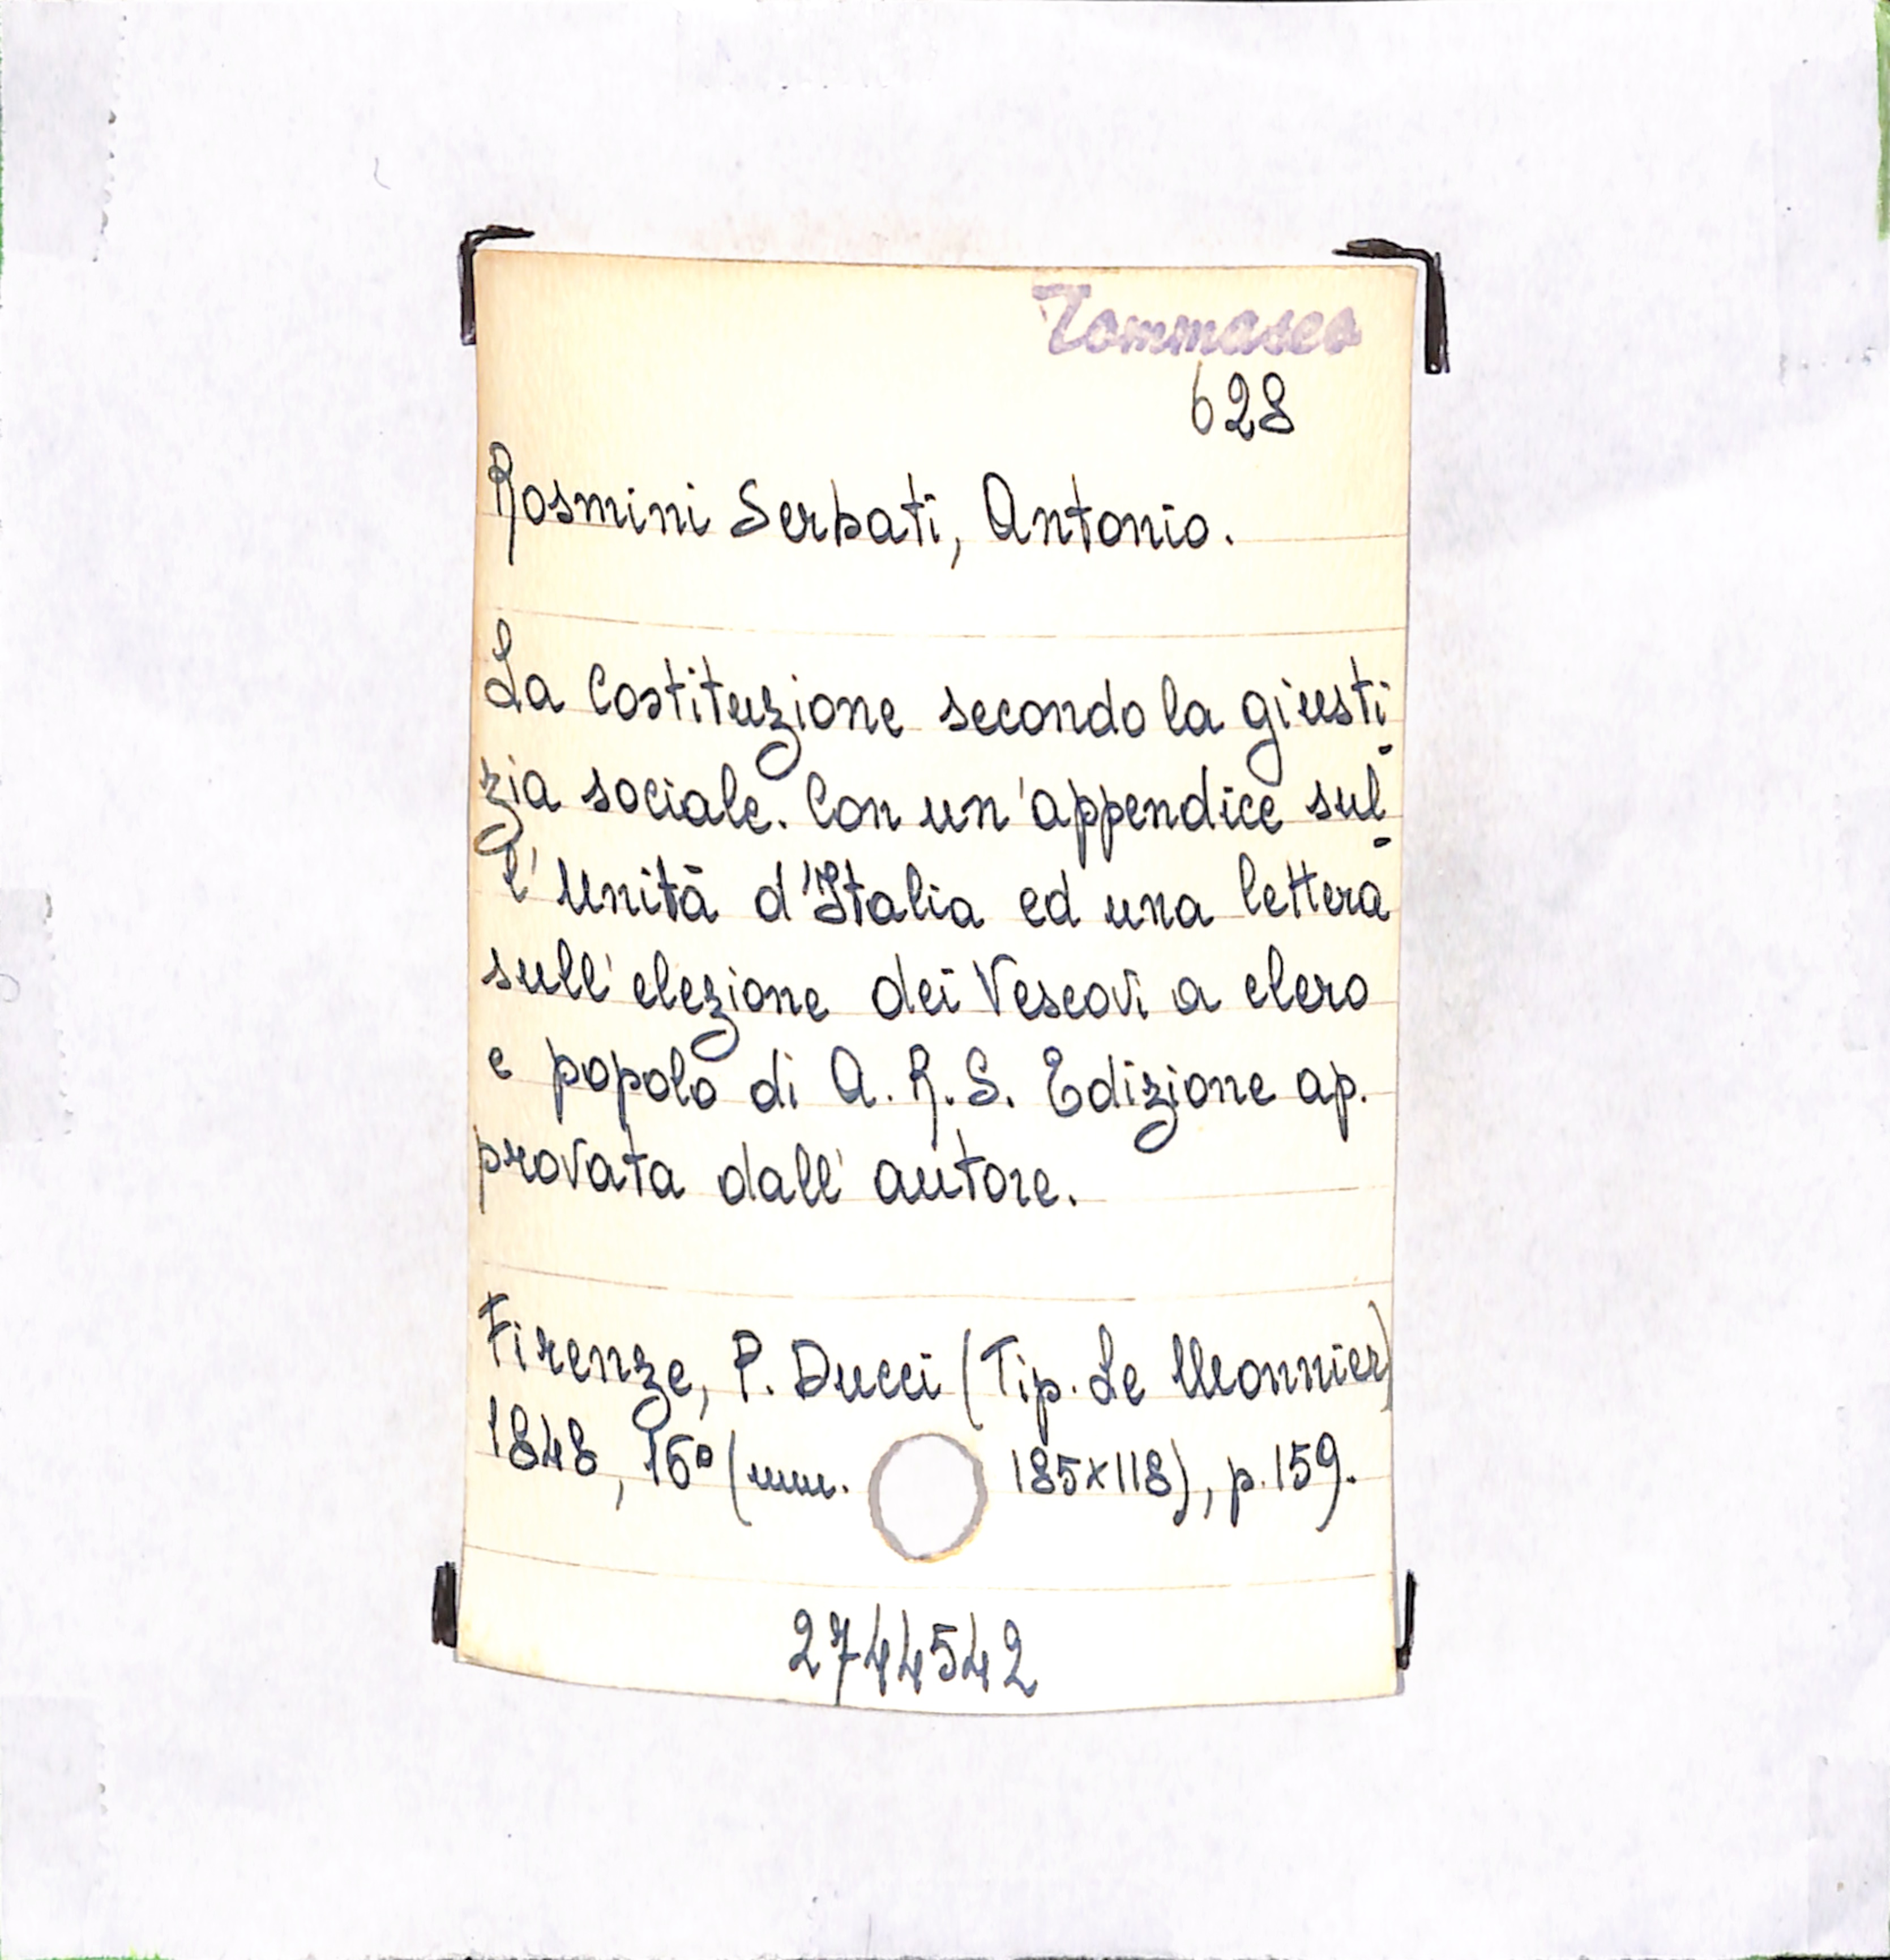 Tommaseo
628
Rosmini Serbati, Antonio.
La Costituzione secondo la giusti-
zia sociale. Con un'appendice sul-
l'Unità d'Italia ed una lettera
sull'elezione dei Vescovi a clero
e popolo di A. R. S. Edizione ap.
provata dall'autore.
Firenze, P. Ducci (Tip. Le Monnier)
1848, 16° (mm. 185x118), p. 159.
2744542